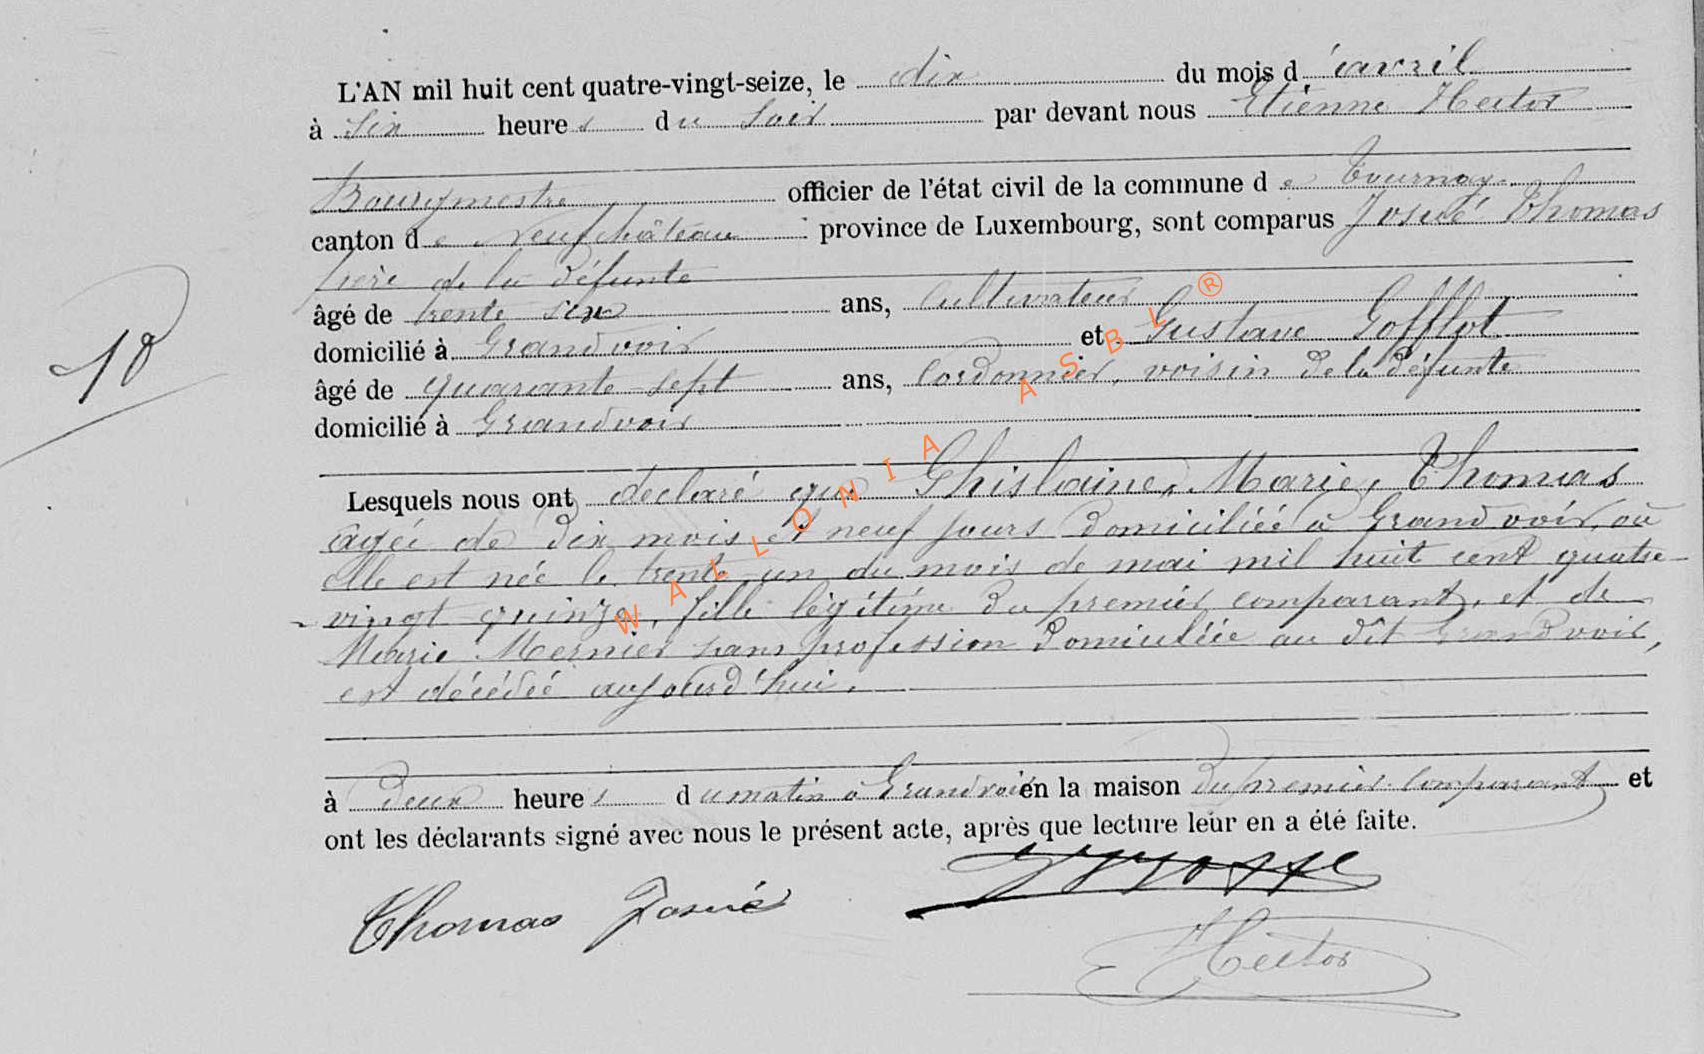 L'AN mil huit cent quatre-vingt-seize, le dix du mois d'avril
à six heures du soir par devant nous Etienne Hector
Bourgmestre officier de l'état civil de la commune de Tournay
canton de Neufchâteau province de Luxembourg, sont comparus Josué Thomas
père de la défunte
âgé de trente six ans, cultivateur
domicilié à Grandvoir et Gustave Gofflot
âgé de quarante-sept ans, cordonnier, voisin de la défunte
domicilié à Grandvoir
10
Lesquels nous ont déclaré que Ghislaine, Marie, Thomas
âgée de dix mois et neuf jours domiciliée à Grandvoir, où
elle est née le trente-un du mois de mai mil huit cent quatre-
vingt quinze, fille légitime du premier comparant, et de
Marie Mernier sans profession domiciliée au dit Grandvoir,
est décédée aujourd'hui.
à deux heures du matin à Grandvoir en la maison du premier comparant et
ont les déclarants signé avec nous le présent acte, après que lecture leur en a été faite.
Thomas Josué
Hector
WALLONIA ASBL ®